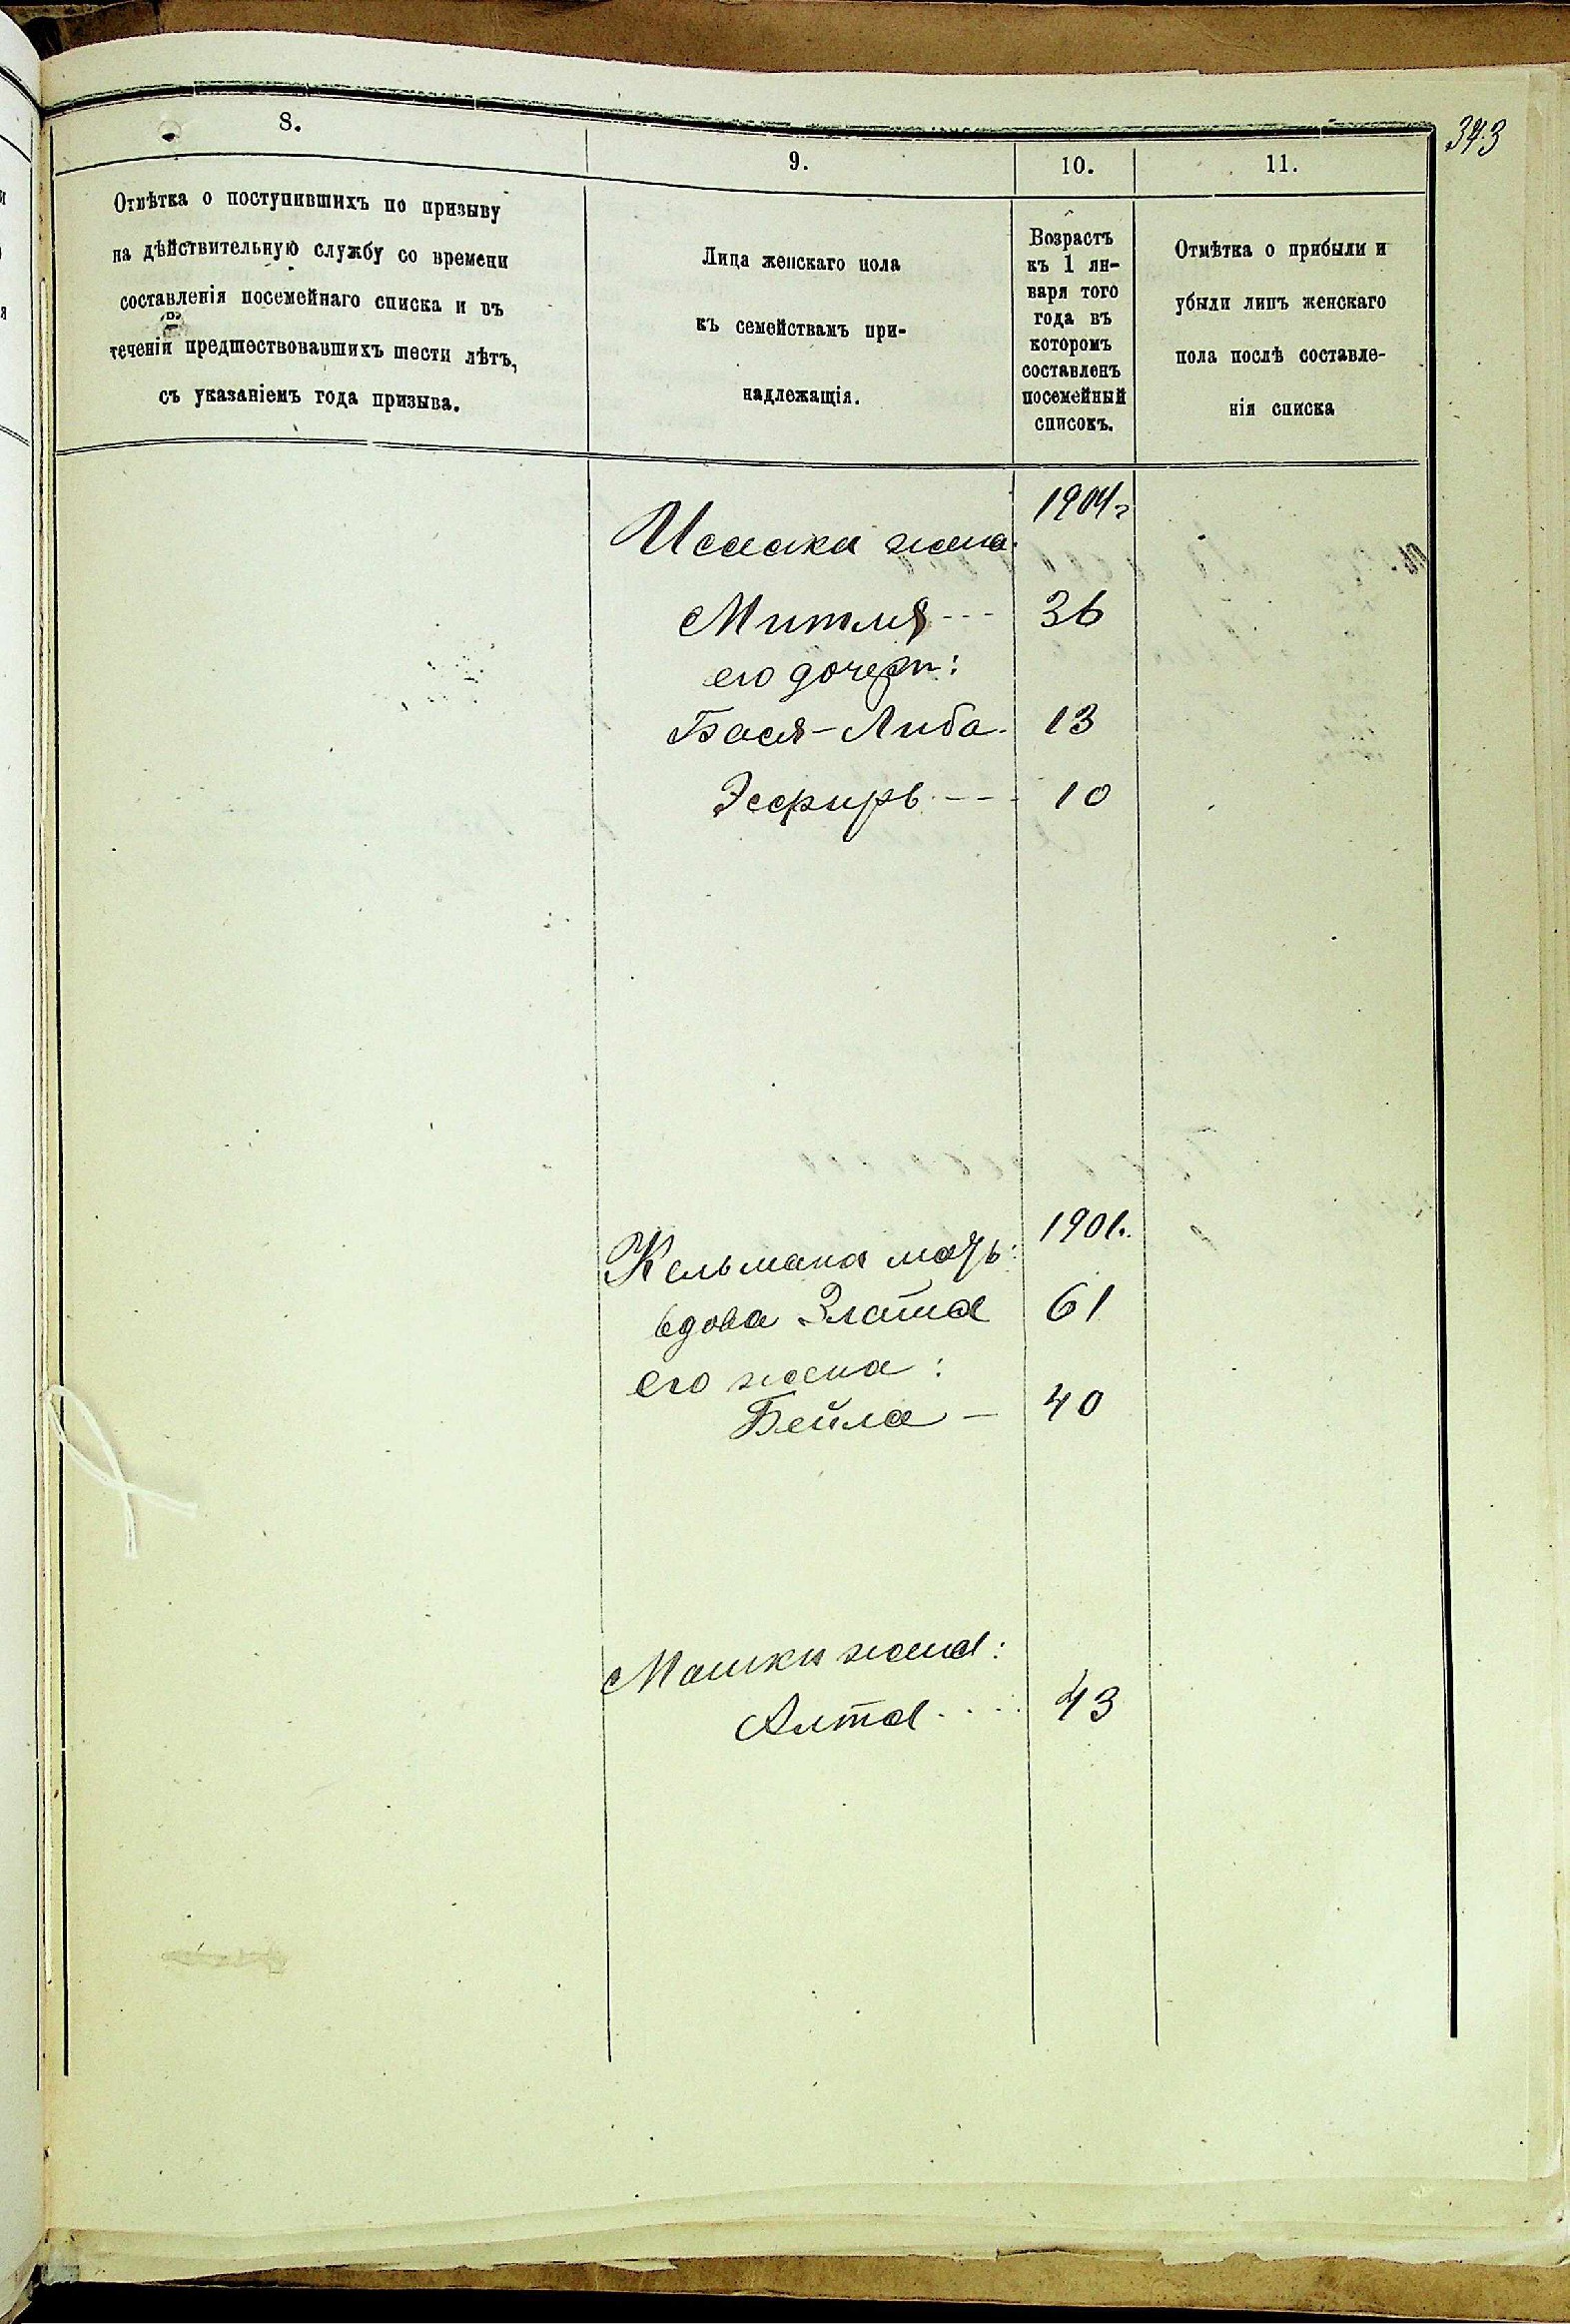 343
8.
9.
10.
11.
Отмѣтка о поступившихъ по призыву
на дѣйствительную службу со времени
составленія посемейнаго списка и въ
теченіи предшествовавшихъ шести лѣтъ,
съ указаніемъ года призыва.
Лица женскаго пола
къ семействамъ при-
надлежащія.
Возрастъ
къ 1 ян-
варя того
года въ
которомъ
составленъ
посемейный
списокъ.
Отмѣтка о прибыли и
убыли лицъ женскаго
пола послѣ составле-
нія списка
1904 г
Исаака жена.
Митля --- 36
его дочери:
Бася-Либа. 13
Эсфирь --- 10
1901.
Кельмана мать:
вдова Злата 61
его жена:
Бейла - 40
Мошки жена:
Алта .... 43